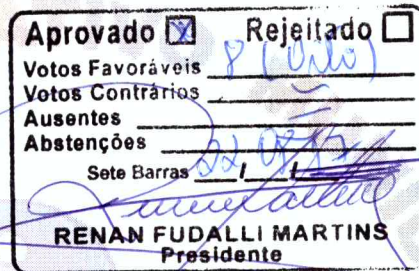 Aprovado ☒ Rejeitado ☐
Votos Favoráveis 8 (Oito)
Votos Contrários
Ausentes
Abstenções
Sete Barras 22 / /
RENAN FUDALLI MARTINS
Presidente